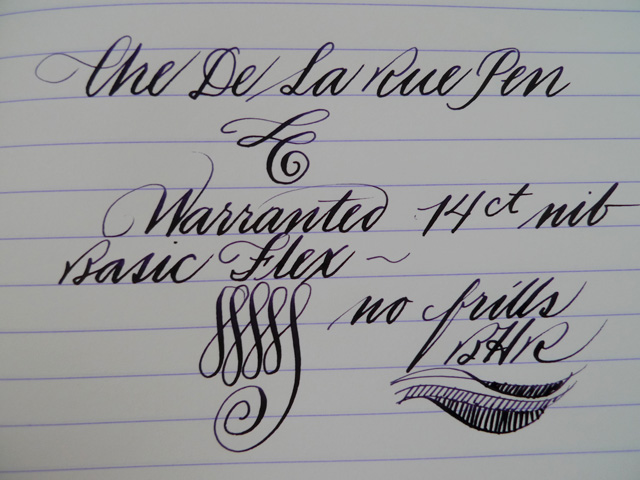 The De La Rue Pen
Warranted 14ct nib
Basic Flex ~
no frills
BHR